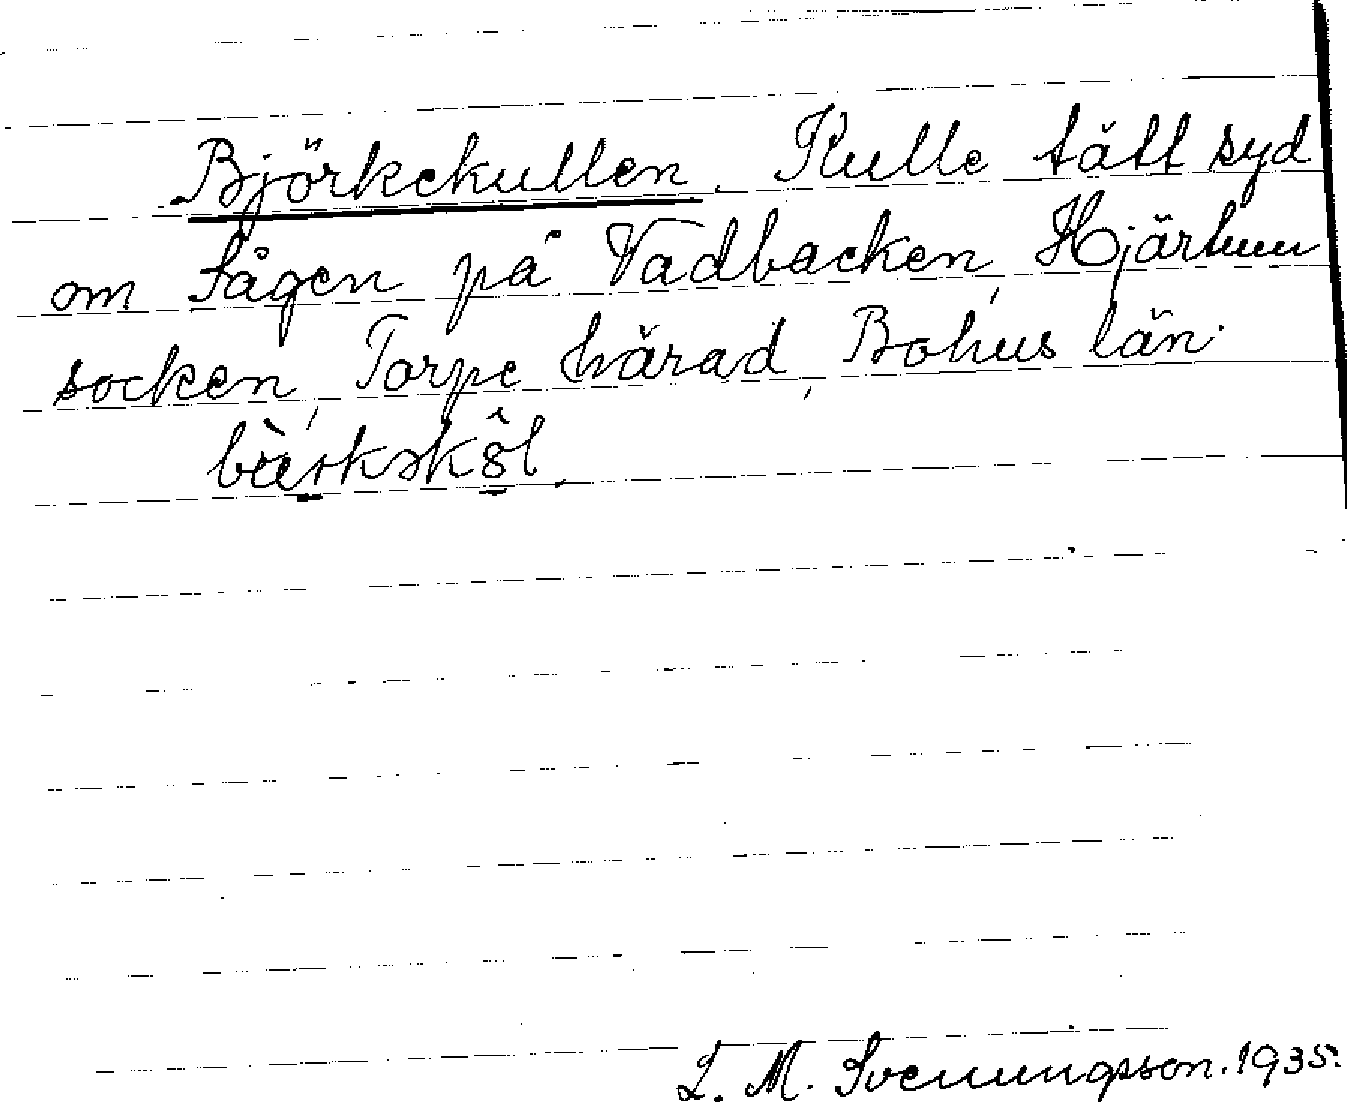 Björkekullen. Kulle tätt syd
om Sågen på Vadbacken, Hjärtum
socken, Torpe härad, Bohus län.
L. M. Svenungsson. 1935.